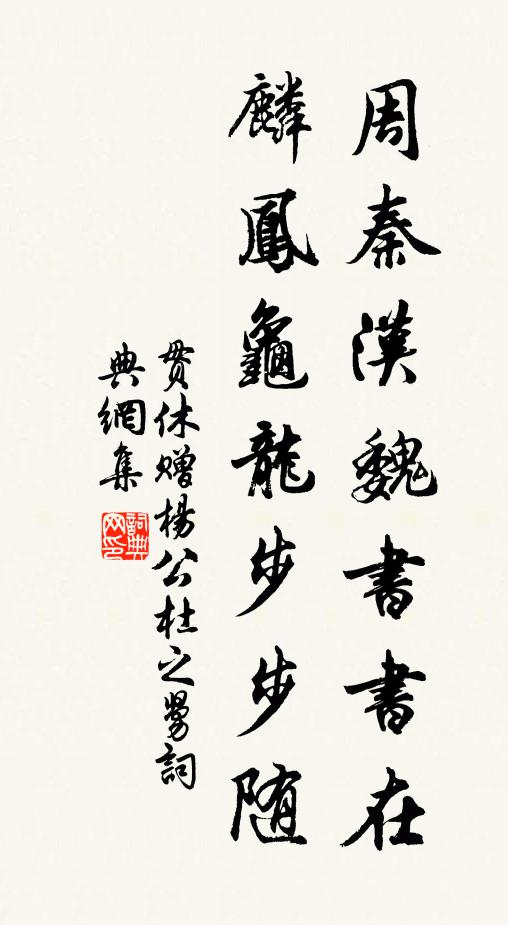 周秦漢魏書書在
麟鳳龜龍步步随
貫休赠楊公杜之舅詞
典網集
詞典
网印